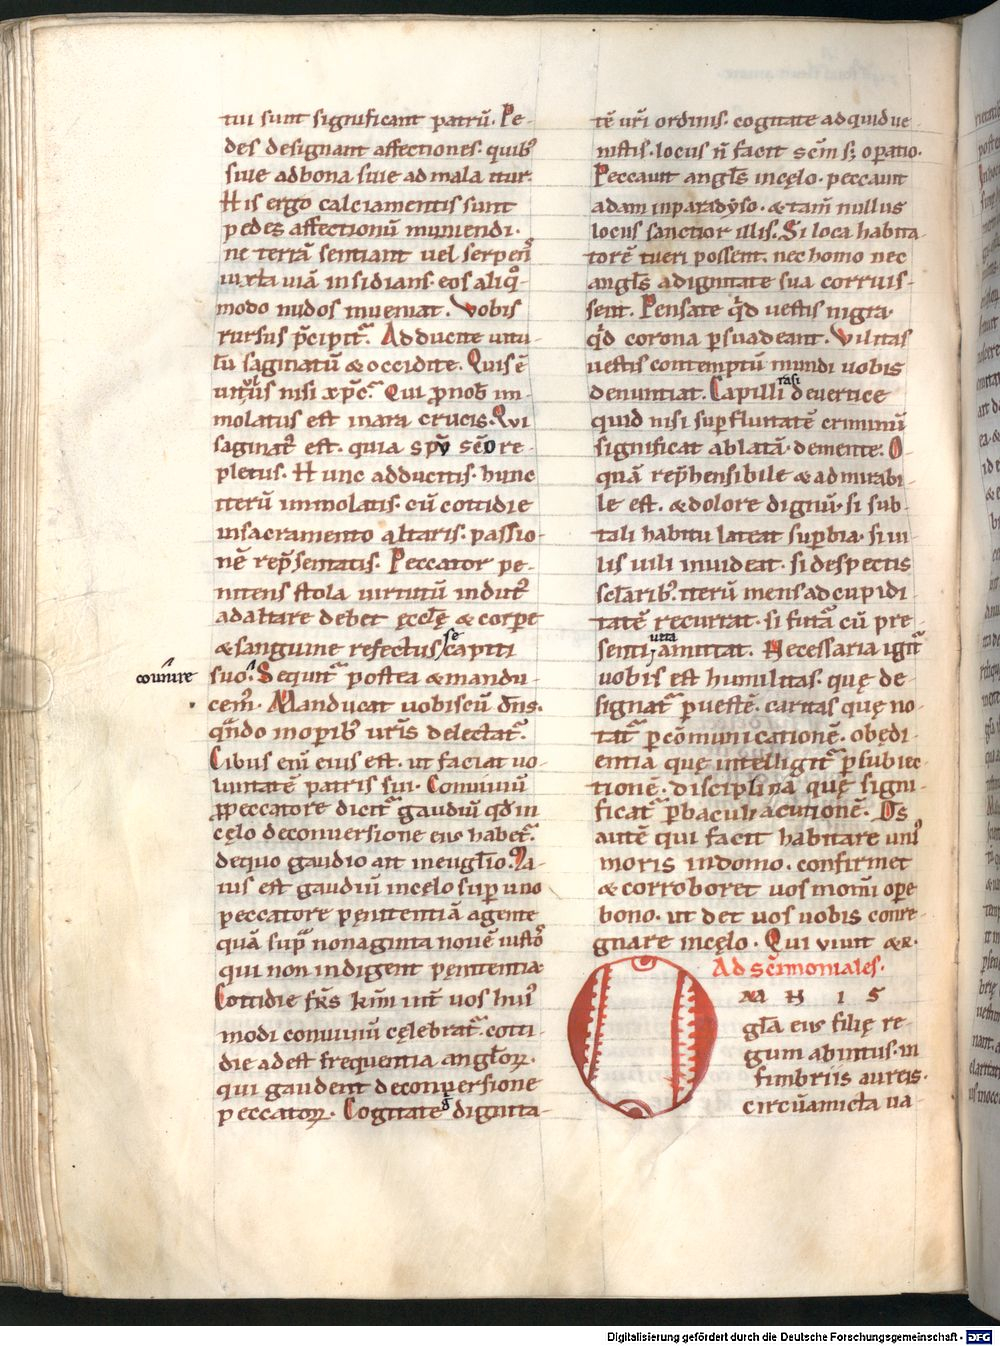 tui sunt significant patrū. Pe-
des designant affectiones. quib᷒
siue adbona siue ad mala itur.
His ergo calciamentis sunt
pedes affectionū muniendi.
ne terrā sentiant uel serpens
iuxta uiā insidians. eos aliq̊-
modo nudos inueniat. Vobis
rursus p̄cipit᷑. Adducite uitu-
lū saginatū & occidite. Quis ē
uitulus nisi xp̄c. Qui pro nob᷒ im-
molatus est in ara crucis. Qui
saginat᷒ est. quia spū scō re-
pletus. Hunc adducitis. hunc
iterū immolatis. cū cottidie
insacramento altaris. passio-
nē rep̄sentatis. Peccator pe-
nitens stola uirtutū indut᷒
ad altare debet ęcclę & corpe
& sanguine refectus se capiti
conuiuire
suo. Sequit᷑ postea & mandu-
cem᷒. Manducat uobiscū dn̄s.
qn̄do in operib᷒ uris delectat᷑.
Cibus eni eius est. ut faciat uo-
luntatē patris sui. Conuiuiū
p peccatore dicit᷑ gaudiū qd̄ in
cęlo deconuersione eius habet᷑.
dequo gaudio ait in euglio. Ma-
ius est gaudiū incelo sup uno
peccatore penitentiā agente
quā sup nonaginta nouē iustos
qui non indigent pęnitentia.
Cottidie frs̄ km̄i int̄ uos hui᷒
modi conuiuiū cęlebrat᷑. cotti-
die adest frequentia anglorꝝ.
qui gaudent deconuersione
peccatorꝝ. Cogitate g̊ dignita-
tē uri ordinis. cogitate ad quid ue-
nistis. locus n̄ facit scm̄ s; opatio.
Peccauit angls incęlo. peccauit
adam in paradyso. & tam̄ nullus
locus sanctior illis. Si loca habita-
torē tueri possent. nec homo nec
angls a dignitate sua corruis-
sent. Pensate qd̄ uestis nigra.
qd̄ corona psuadeant. Vilitas
uestis contemptū mundi uobis
denuntiat. Capilli rasi deuertice
quid nisi supfluitatē criminū
significat ablatā demente. O
quā rep̄hensibile & admirabi-
le est. & dolore dignū. si sub-
tali habitu lateat supbia. si ui-
lis uili inuideat. si despectis
sclarib᷒. iterū mens ad cupidi-
tatē recurrat. si futura cū pre-
senti uita amittat. Necessaria igit᷑
uobis est humilitas. quę de-
signat᷑ p uestē. caritas quę no-
tat᷑ p cōmunicationē. obędi-
entia quę intelligit᷑ p subiec-
tionē. disciplina quę signi-
ficat᷑ p baculi acutionē. Ds̄
autē qui facit habitare uni᷒
moris indomo. confirmet
& corroboret uos in omi ope
bono. ut det uos uobis conre-
gnare incęlo. Qui viuit &R.
Ad scīmoniales.
OMNIS
gla eius filię re-
gum abintus. in
fimbriis aureis.
circūamicta ua-
Digitalisierung gefördert durch die Deutsche Forschungsgemeinschaft - DFG